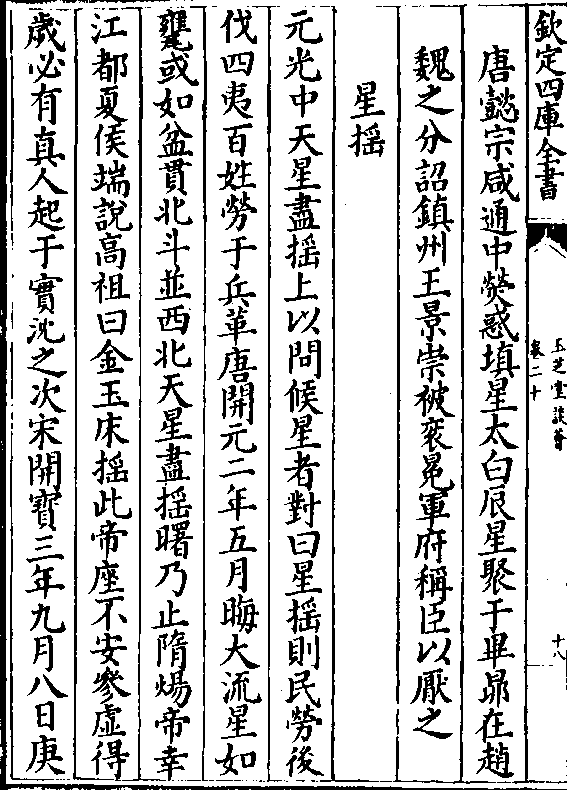 欽定四庫全書
玉芝堂談薈
卷二十
十八
唐懿宗咸通中熒惑填星太白辰星聚于畢昴在趙
魏之分詔鎮州王景崇被衮冕軍府稱臣以厭之
星揺
元光中天星盡揺上以問候星者對曰星揺則民勞後
伐四夷百姓勞于兵革唐開元二年五月晦大流星如
甕或如盆貫北斗並西北天星盡揺曙乃止隋煬帝幸
江都夏侯端說高祖曰金玉床揺此帝座不安參虛得
歲必有真人起于實沈之次宋開寶三年九月八日庚